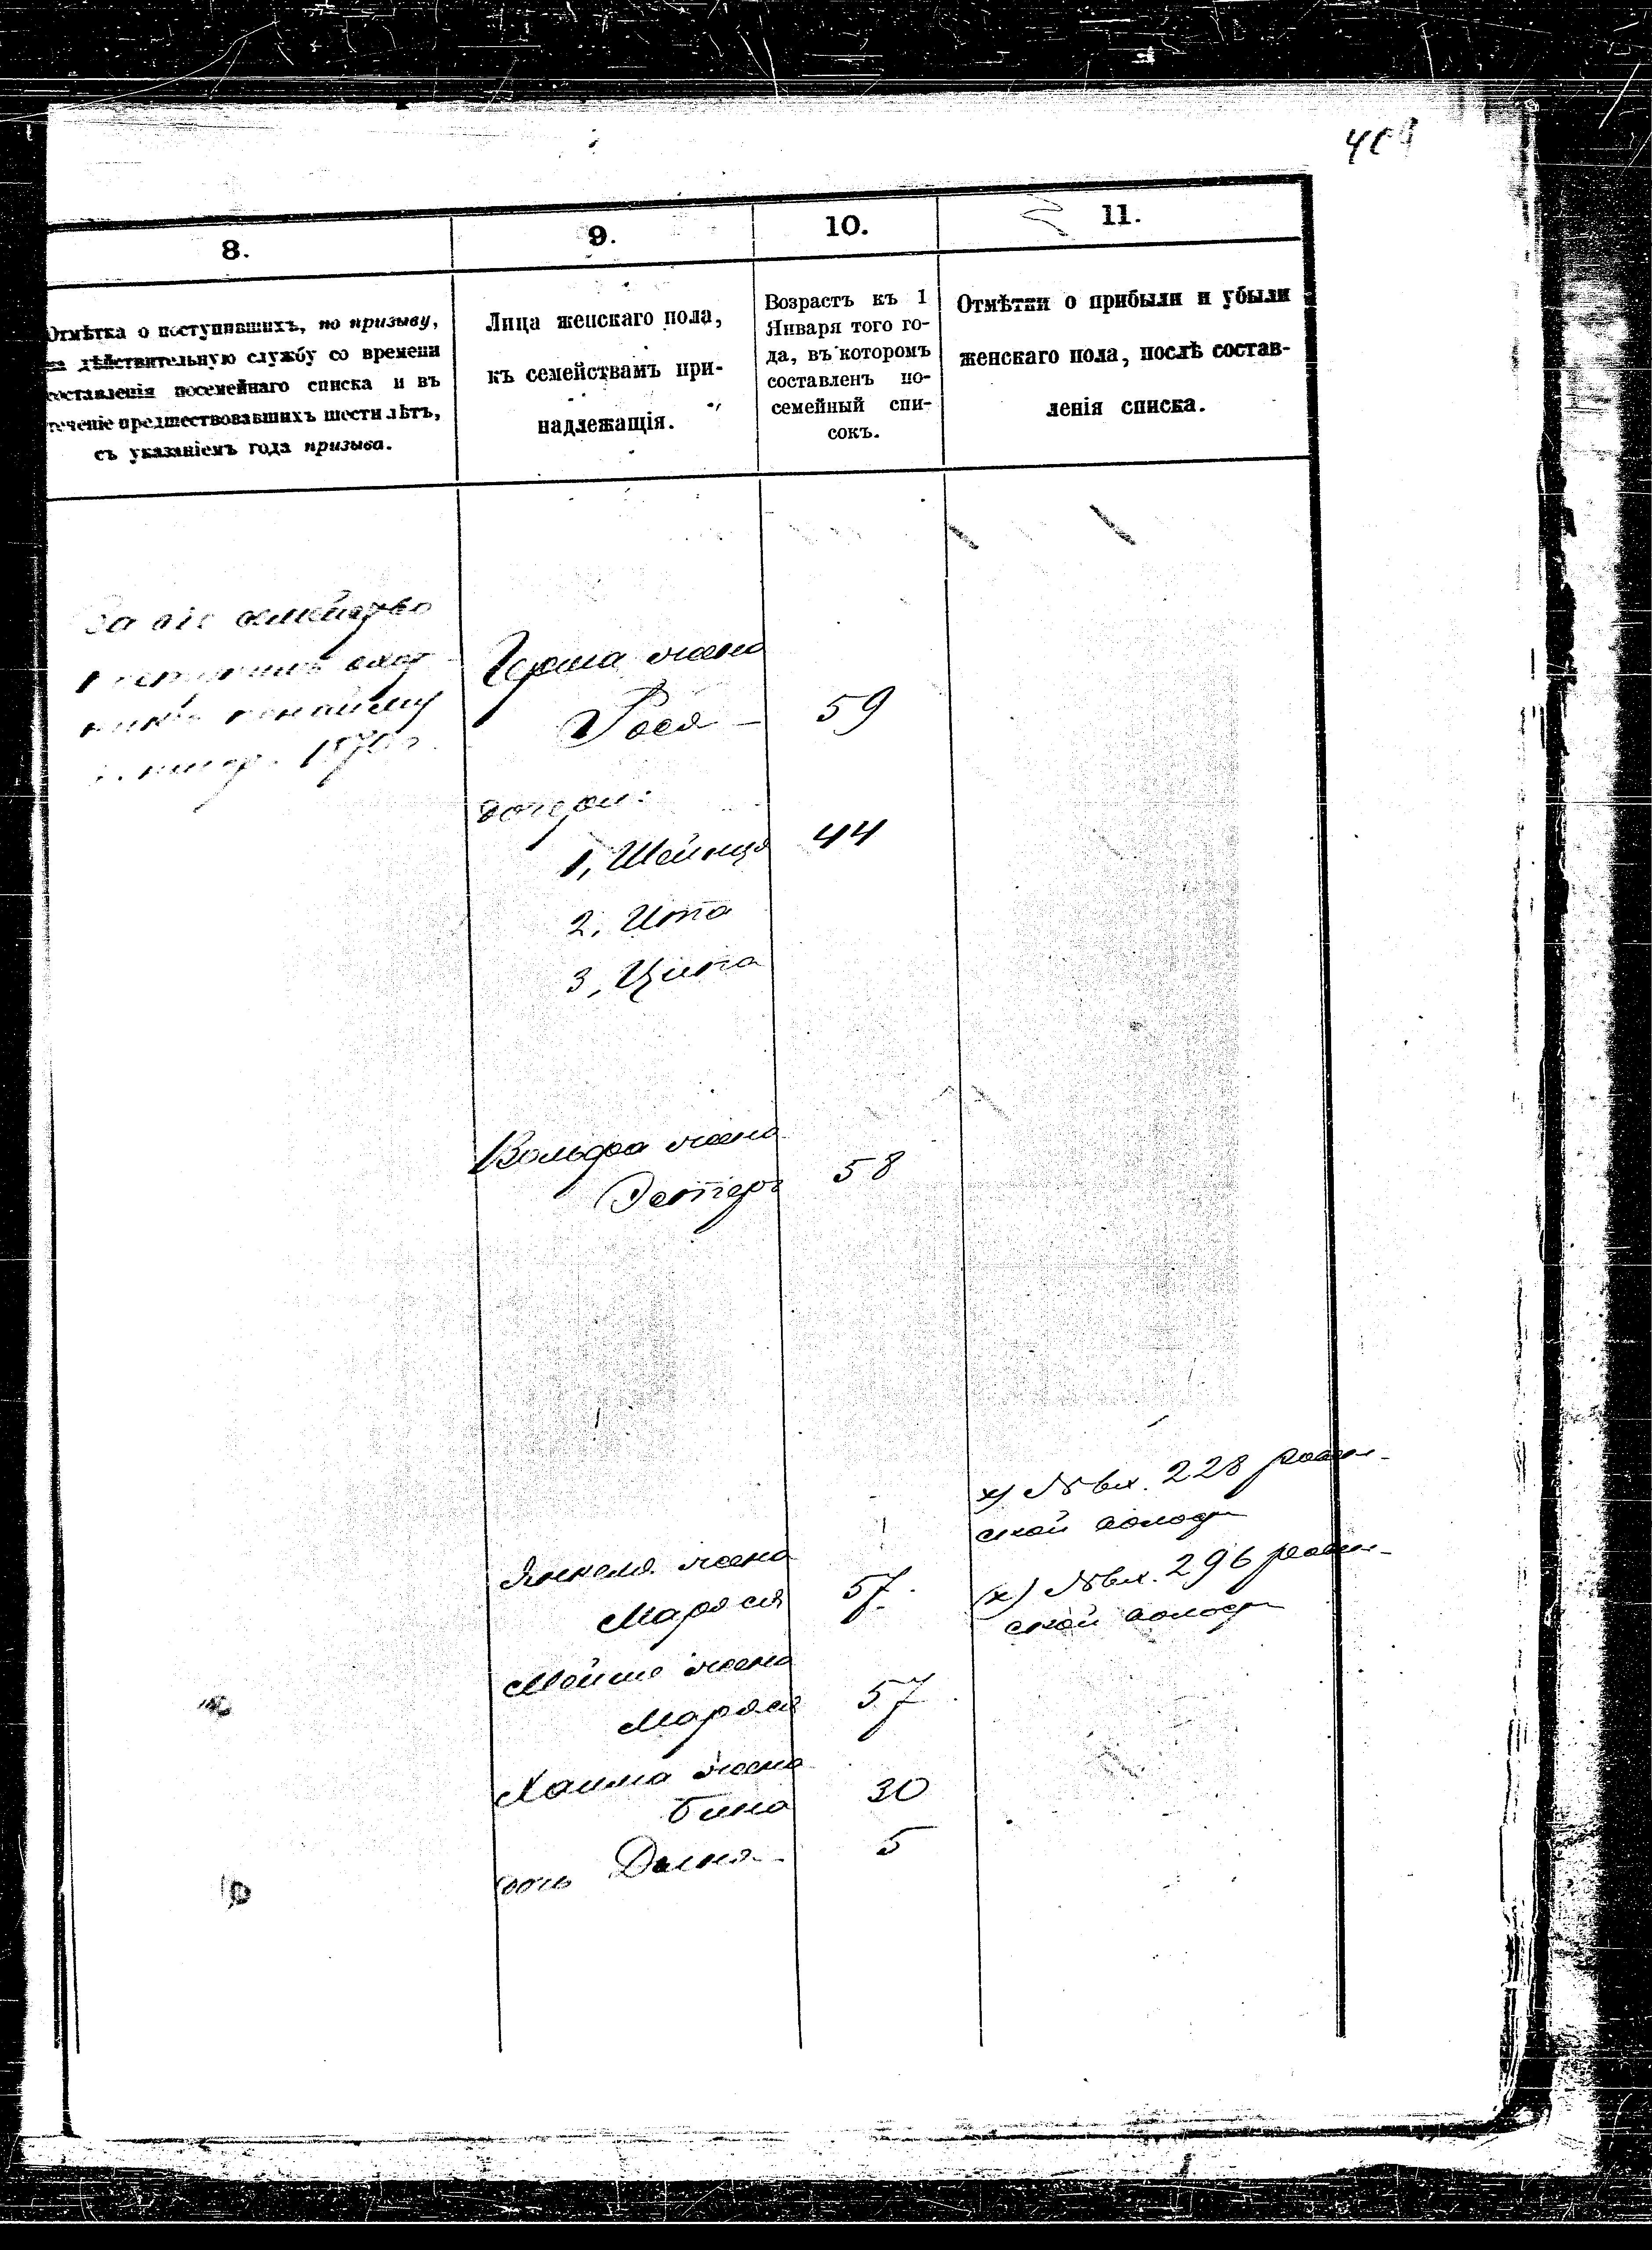 409
8.
9.
10.
11.
Отмѣтка о поступившихъ, по призыву,
на дѣйствительную службу со времени
составленія посемейнаго списка и въ
теченіе предшествовавшихъ шести лѣтъ,
съ указаніемъ года призыва.
Лица женскаго пола,
къ семействамъ при-
надлежащія.
Возрастъ къ 1
Января того го-
да, въ которомъ
составленъ по-
семейный спи-
сокъ.
Отмѣтки о прибыли и убыли
женскаго пола, послѣ состав-
ленія списка.
За сіе семейство
1870 г.
жена
Рося 59
дочери:
1, Шейнца 44
2, Ита
3, Ципа
Вольфа жена
Эстеръ 58
х) № вх. 228
ской волости
Янкеля жена
Маряся 57.
(х) № вх. 296
ской волости
Мейше жена
Маряся 57
Хаима жена
Бина 30
дочь 5